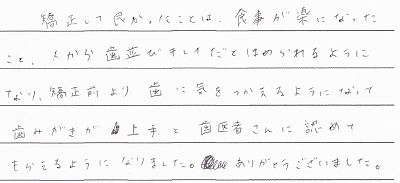 矯正して良かったことは、食事が楽になった
こと、人から歯並びキレイだとほめられるように
なり、矯正前より歯に気をつかえるようになって
歯みがきが上手と歯医者さんに認めて
もらえるようになりました。ありがとうございました。